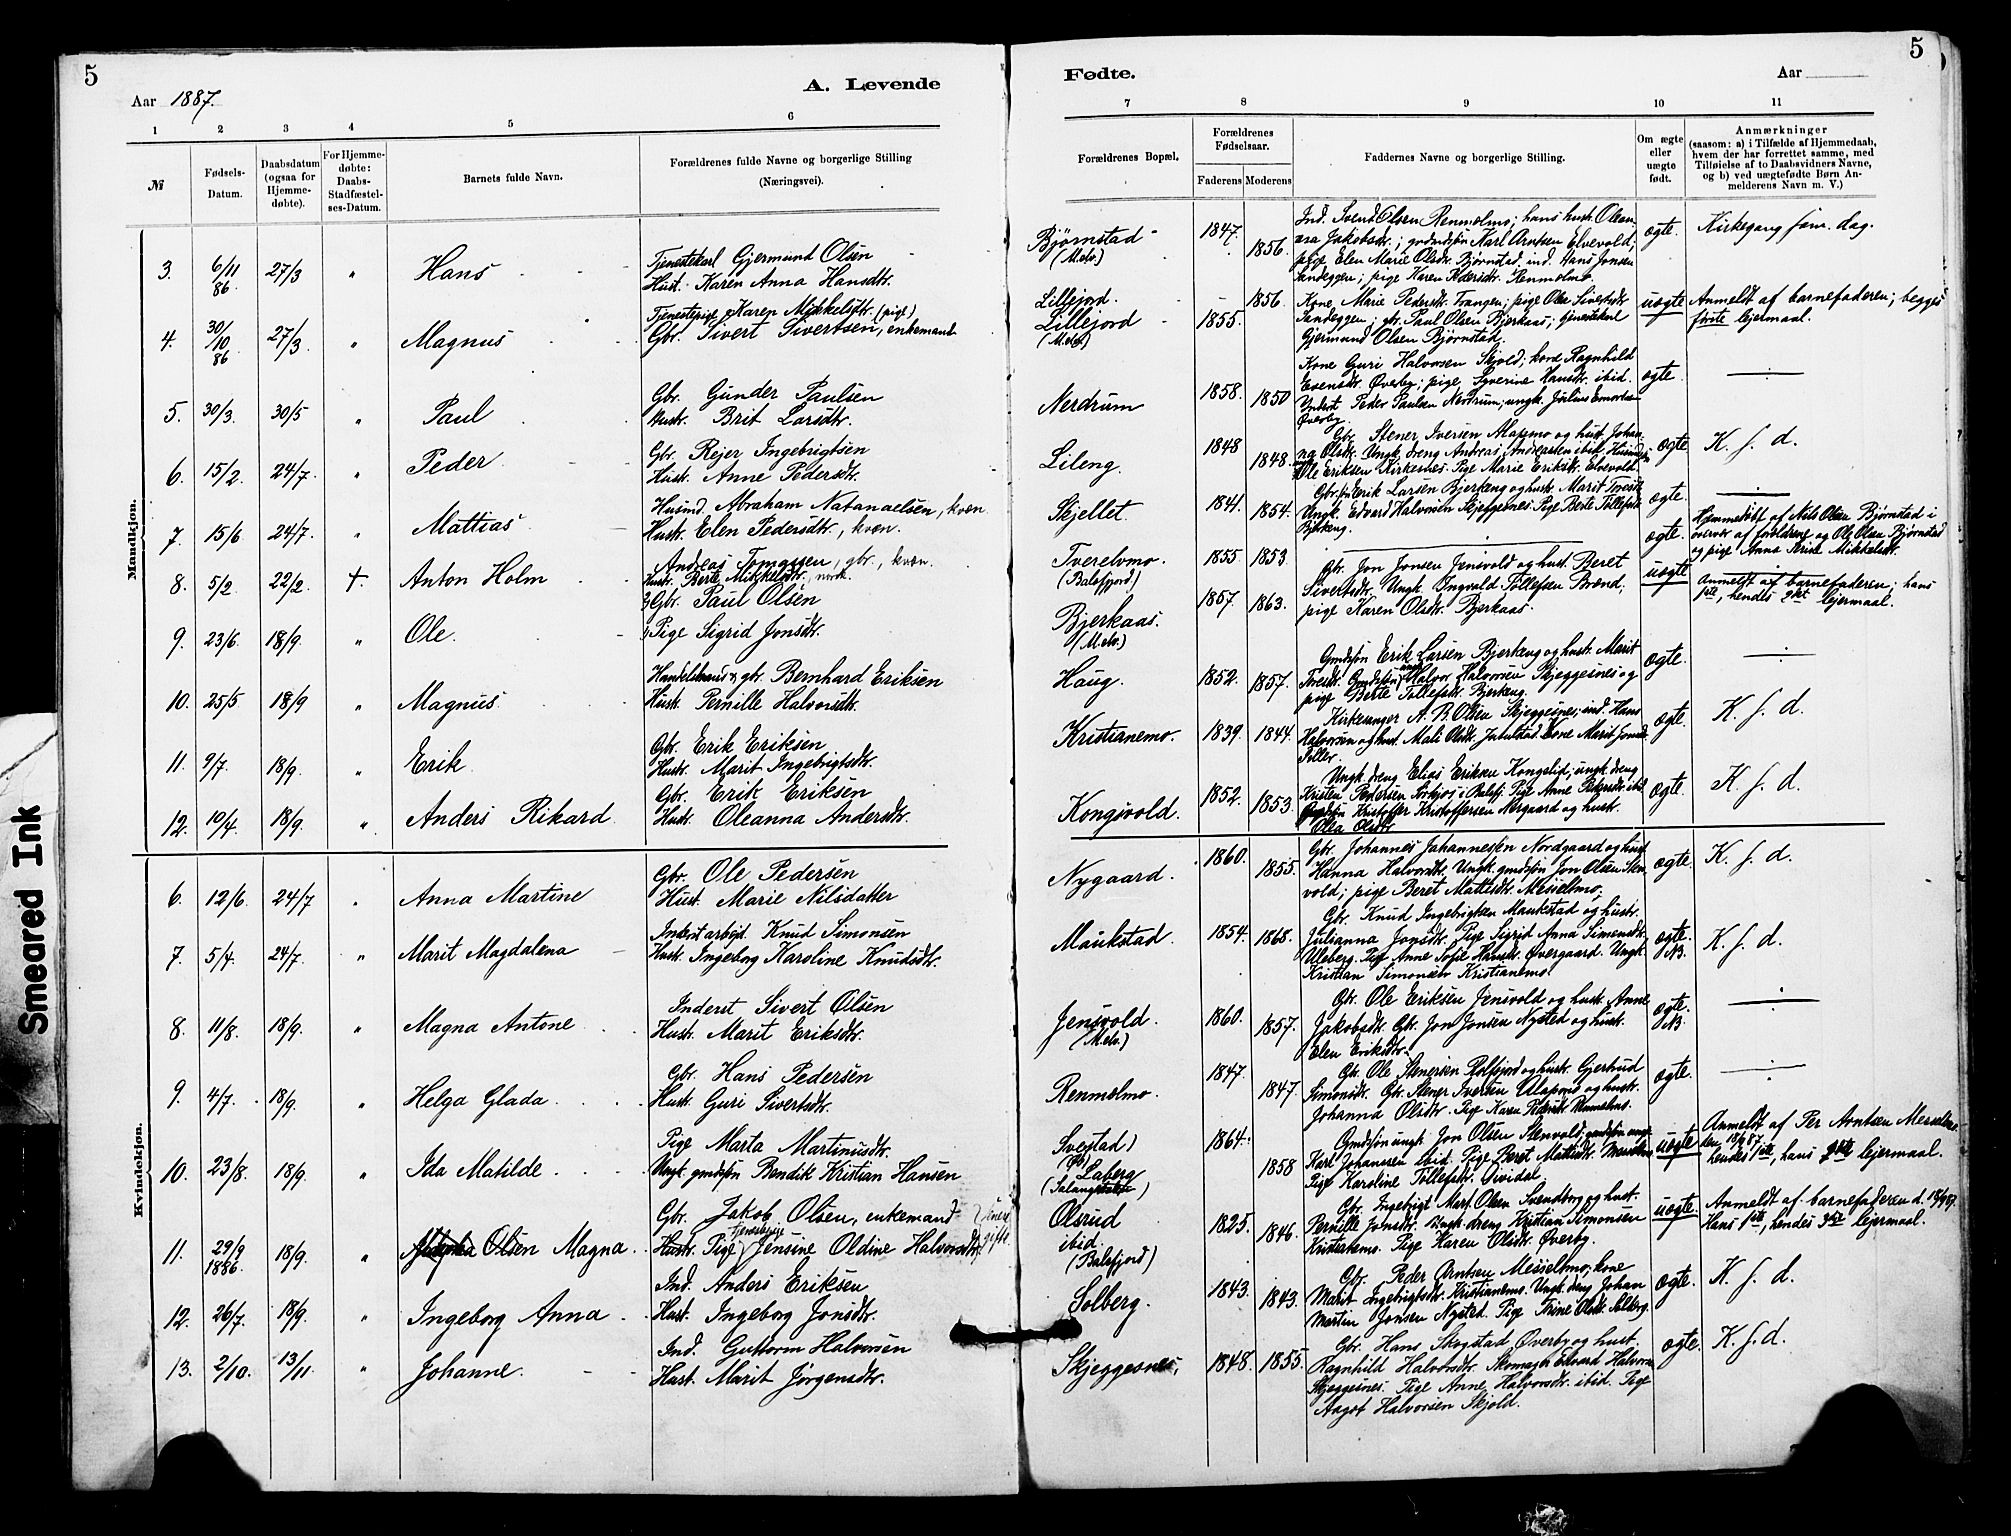 5
Aar 1887.
A. Levende
1 2 3 4 5 6
№
Fødsels-Datum.
Daabsdatum (ogsaa for Hjemme-døbte).
For Hjemme-døbte: Daabs-Stadfæstel-ses-Datum.
Barnets fulde Navn.
Forældrenes fulde Navne og borgerlige Stilling (Næringsvei).
Mandkjøn.
3. 6/11 86 27/3 " Hans
Tjenestekarl Gjermund Olsen
Hust. Karen Anna Hansdtr.
4. 30/10 86 27/3. " Magnus
Tjenestepige Karen Mikkelsdtr. (pige)
Gbr. Sivert Sivertsen, enkemand
5. 30/3. 30/5 " Paul
Gbr. Gunder Paulsen
Hustr. Brit Larsdtr.
6. 15/2. 24/7 " Peder
Gbr. Rejer Ingebrigtsen
Hustr. Anne Pedersdtr.
7. 15/6 24/7. " Mattias
Husmd. Abraham Natanaelsen, kvæn
Hustr. Elen Pedersdtr., kvæn.
8. 5/2. 22/2. +. Anton Holm
Andreas Tomassen, gbr., kvæn.
Hustr. Berte Mikkelsdtr., norsk.
9. 23/6. 18/9. " Ole.
Gbr. Paul Olsen
Pige Sigrid Jonsdtr.
10. 25/5 18/9 " Magnus
Handelsmand & gbr. Bernhard Eriksen
Hustr. Pernille Halvorsdtr.
11. 9/7. 18/9. " Erik.
Gbr. Erik Eriksen
Hustr. Marit Ingebrigtsdtr.
12. 10/4. 18/9. " Anders Rikard
Gbr. Erik Eriksen
Hustr. Oleanna Andersdtr.
Kvindekjøn.
6. 12/6. 24/7 " Anna Martine
Gbr. Ole Pedersen
Hust. Marie Nilsdatter
7. 5/4. 24/7. " Marit Magdalena
Inderst arbejd. Knud Simonsen
Hustr. Ingeborg Karoline Knudsdtr.
8. 11/8. 18/9. " Magna Antone
Inderst Sivert Olsen
Hustr. Marit Eriksdtr.
9. 4/7. 18/9. " Helga Glada
Gbr. Hans Pedersen
Hustr. Guri Sivertsdtr.
10. 23/8. 18/9. " Ida Matilde
Pige Marta Martinusdtr.
Ungk. gmdsøn Bendik Kristian Hansen
11. 29/9 1886. 18/9. " Olsen Magna
Gbr. Jakob Olsen, enkemand
Hustr. Pige tjenestepige Jensine Oldine Halvorsdtr.
12. 26/7. 18/9. " Ingeborg Anna
Ind. Anders Eriksen
Hust. Ingeborg Jonsdtr.
13. 2/10. 13/11. " Johanne
Ind. Guttorm Halvorsen
Hust. Marit Jørgensdtr.
5
Fødte.
Aar
7 8 9 10 11
Forældrenes Bopæl.
Forældrenes Fødselsaar.
Faderens Moderens
Faddernes Navne og borgerlige Stilling.
Om ægte eller uægte født.
Anmærkninger
(saasom: a) i Tilfælde af Hjemmedaab, hvem der har forrettet samme, med Tilføielse af to Daabsvidners Navne, og b) ved uægtefødte Børn Anmelderens Navn m. V.)
Bjørnstad (Melv.) 1847. 1856.
Ind. Svend Olsen Renmelmo; hans hust. Olean-
na Jakobsdtr.; gmdsøn Karl Arntsen Elvevold;
pige Elen Marie Olsdtr. Bjørnstad, ind. Hans Jonsen
Sandeggen; pige Karen Pedersdtr. Renmelmo.
ægte. Kirkegang sam. dag.
Lillejord. Lillejord (Melv.) 1855. 1856.
Kone Marie Pedersdtr. Trangen; pige Olea Sivertsdtr.
Sandeggen; gbr. Paul Olsen Bjerkaas; tjenestekarl
Gjermund Olsen Bjørnstad.
uægte Anmeldt af barnefaderen; begges
første lejermaal.
Nerdrum 1858. 1850
Kone Guri Halvorsen Skjold; kone Ragnhild
Evensdtr. Øverby; pige Syverine Hansdtr. ibid.
Inderst Peder Paulsen Nerdrum; ungk. Julius Emertsen
Øverby
ægte.
Lileng. 1848 1848.
Gbr. Stener Iversen Alapmo og hust. Johan-
na Olsdtr. Ungk. dreng Andreas Andreassen ibid.
Ole Eriksen Kirkesnes. Pige Marie Eriksdtr. Elvevold.
ægte K. s. d.
Skjellet. 1841. 1854.
Gbr. Erik Larsen Bjerkeng og hustr. Marit
Ungk. Edvard Halvorsen Skjeggesnes. Pige Berte Tollefsdtr.
Bjerkeng.
ægte.
Tverelvmo (Balsfjord) 1855 1853
ægte. Hjemmedøbt af Nils Olsen Bjørnstad i
overvær af forældrene og Ole Olsen Bjørnstad
og pige Anna Serine Mikkelsdtr.
Bjerkaas. (Melv.) 1857. 1863.
Gbr. Jon Jonsen Jensvold og hust. Beret
Sivertsdtr. Ungk. Ingvald Tollefsen Brænd,
pige Karen Olsdtr. Bjerkaas.
uægte Anmeldt af barnefaderen; hans
1ste, hendes 2det lejermaal.
Haug. 1852. 1857.
Gmdsøn Erik Larsen Bjerkeng og hustr. Marit
Gmdsøn ungk. Halvor Halvorsen Skjeggesnes og
pige Berte Tollefsdtr. Bjerkeng.
ægte.
Kristianemo. 1839. 1844.
Kirkesanger A. B. Olsen Skjeggesnes; ind. Hans
Halvorsen og hust. Mali Olsdtr. Jubulstad Kone Marit Jonsd.
ægte. K. s. d.
Kongsvold. 1852. 1853.
Ungk. dreng Elias Eriksen Kongslid; ungk. dreng
Kristen Pedersen i Balsfj. Pige Anne Petersdtr. ibid.
Gmdsøn Kristoffer Kristoffersen Nergaard og hustr.
Olea Olsdtr.
ægte. K. s. d.
Nygaard. 1860. 1855.
Gbr. Johannes Johannessen Nordgaard og hust
Hanna Halvorsdtr. Ungk. gmdsøn Jon Olsen Sten-
vold; pige Beret Mattisdtr. Messelmo,
ægte. K. s. d.
Maukstad. 1854. 1868.
Gbr. Knud Ingebrigtsen Maukstad og hustr.
Julianna Jonsdtr. Pige Sigrid Anna Simonsdtr.
Uleberg. Pige Anne Sofie Hansdtr. Øvergaard. Ungk.
Kristian Simonsen Kristianemo.
ægte. NB. K. s. d.
Jensvold. (Melv.) 1860. 1857.
Gbr. Ole Eriksen Jensvold og hust. Anne
Jakobsdtr. Gbr. Jon Jonsen Nysted og hustr.
Elen Eriksdtr.
ægte. NB.
Renmelmo. 1847. 1847
Gbr. Ole Stenersen Rolfsjord og hustr. Gjertrud
Simonsdtr. Gbr. Stener Iversen Alapmo og hustr.
Johanna Olsdtr. Pige Karen Pedersdtr. Renmelmo.
ægte.
Svestad) (Gbr.) Laberg (Salangsdalen) 1864. 1858
Gmdsøn ungk. Jon Olsen Stenvold, gmdsøn ungk.
Karl Johansen ibid. Pige Beret Mattisdtr. Messelmo
Pige Karoline Tollefsdtr. Dividal.
uægte Anmeldt af Per Arntsen Messelmo
den 18/9 87.
hendes 1ste, hans 2det lejermaal.
Olsrud ibid. (Balsfjord) 1825. 1846.
Gbr. Ingebrigt Mart. Olsen Svendborg og hust.
Pernille Jonsdtr. Ungk. dreng Kristian Simonsen
Kristianemo. Pige Karen Olsdtr. Øverby.
uægte. Anmeldt af barnefaderen d. 18/9 87.
Hans 1ste, hendes 2det lejermaal.
Solberg. 1843. 1843.
Gbr. Peder Arntsen Messelmo; kone
Marit Ingebrigtsdtr. Kristianemo. Ungk. dreng Johan
Martin Jonsen Nysted. Pige Trine Olsdtr. Solberg.
ægte. K. s. d.
Skjeggesnes, 1848. 1855.
Gbr. Hans Skogstad Øverby og hust.
Ragnhild Halvorsdtr. Skomagk. Edvard Halvorsen
Skjeggesnes. Pige Anne Halvorsdtr. ibid. Pige
Aagot Halvorsen Skjold.
ægte. K. s. d.
Smeared Ink